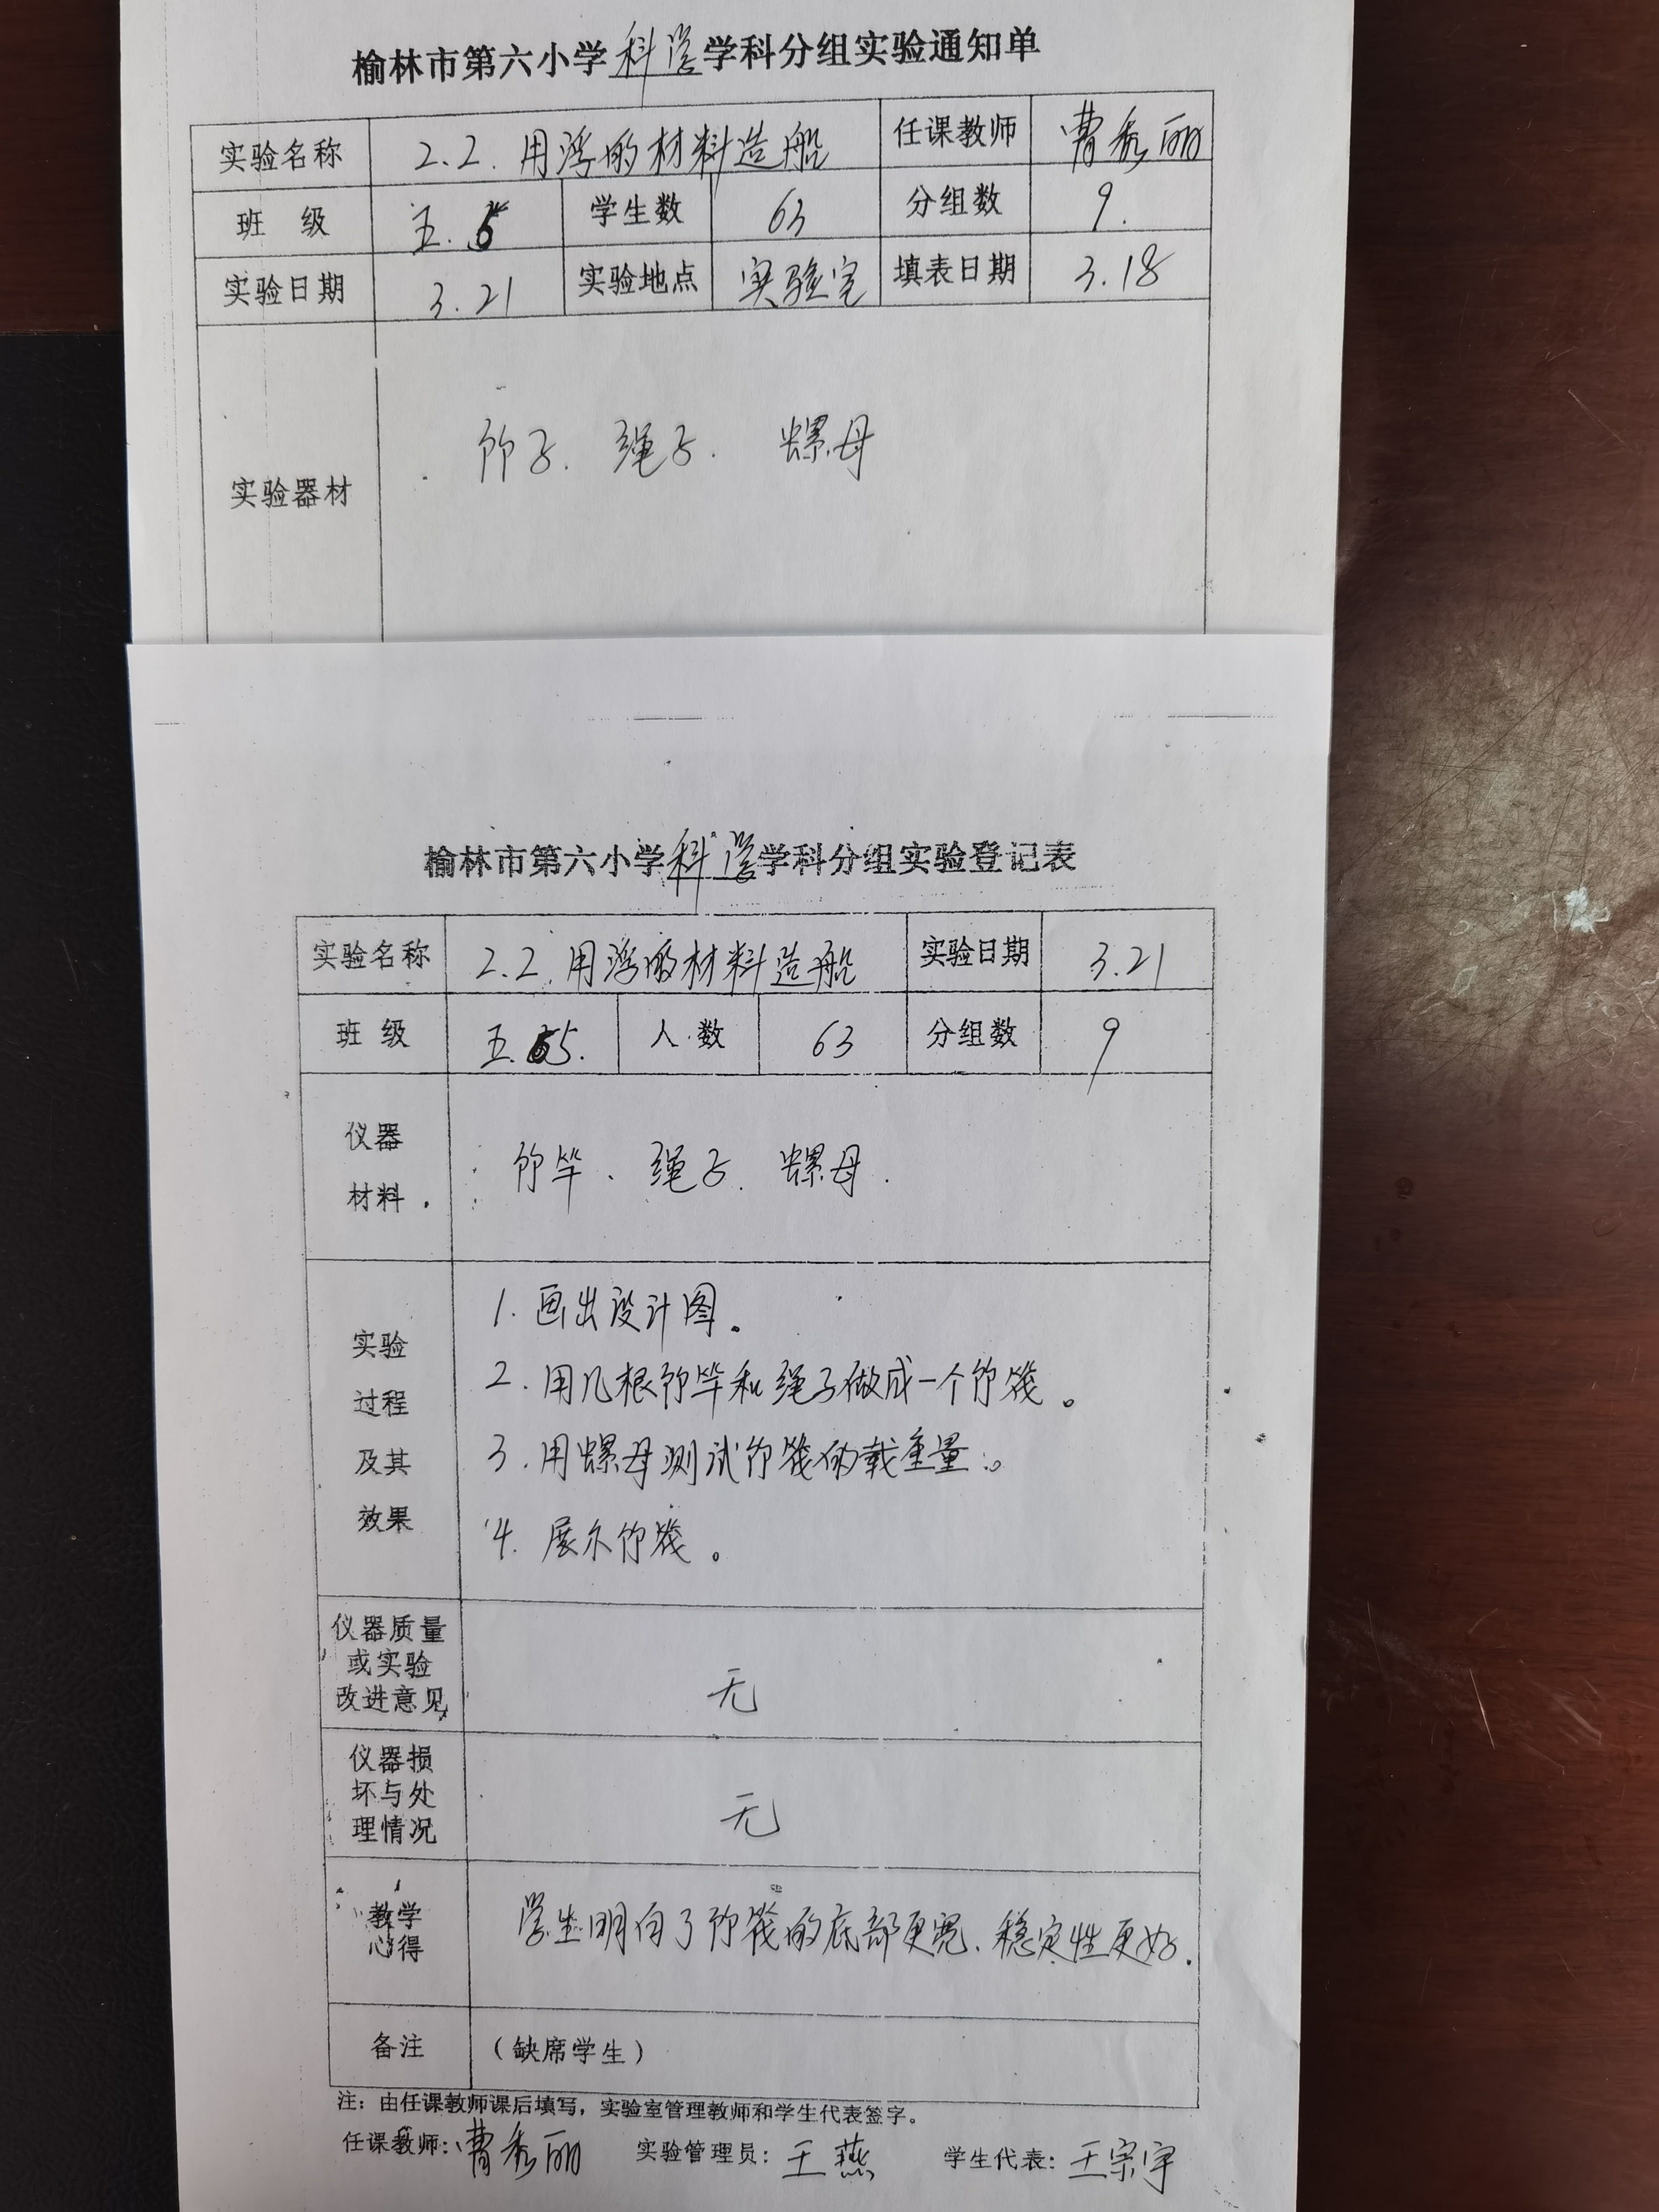 榆林市第六小学科学学科分组实验通知单
实验名称 2.2.用浮的材料造船 任课教师 曹秀丽
班 级 五.5 学生数 63 分组数 9.
实验日期 3.21 实验地点 实验室 填表日期 3.18
实验器材 竹子. 绳子. 螺母
榆林市第六小学科学学科分组实验登记表
实验名称 2.2.用浮的材料造船 实验日期 3.21
班 级 五.5. 人 数 63 分组数 9
仪器
材料
竹竿、绳子、螺母.
实验
过程
及其
效果
1.画出设计图。
2.用几根竹竿和绳子做成一个竹筏。
3.用螺母测试竹筏的载重量。
4.展示竹筏。
仪器质量
或实验
改进意见
无
仪器损
坏与处
理情况
无
教学
心得
学生明白了竹筏的底部更宽、稳定性更好.
备注 (缺席学生)
注：由任课教师课后填写，实验室管理教师和学生代表签字。
任课教师：曹秀丽 实验管理员：王燕 学生代表：王宗宇